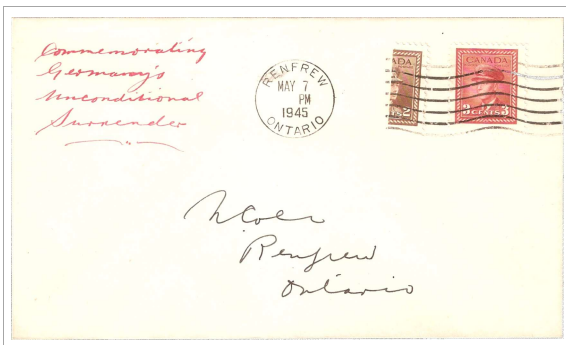 Commemorating
Germany's
Unconditional
Surrender
RENFREW
MAY 7
PM
1945
ONTARIO
ADA
CANADA
2
3 CENTS 3
N Cole
Renfrew
Ontario